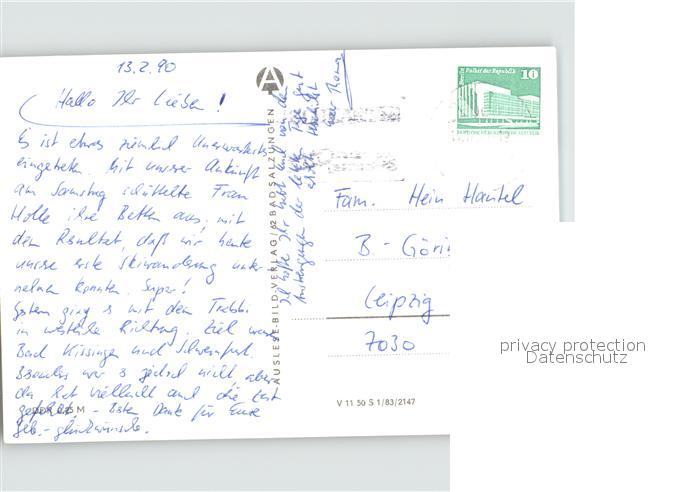 13.2.90
Hallo Ihr Lieben!
Es ist etwas ziemlich Unerwartetes
eingetreten. Mit unserer Ankunft
am Samstag schüttelte Frau
Holle ihre Betten aus, mit
dem Resultat, daß wir heute
unsere erste Skiwanderung unter-
nehmen konnten. Super!
Gestern ging's mit dem Trabbi
in westliche Richtung. Ziel war
Bad Kissingen und Schweinfurt.
Besonders war's nicht, aber
der Rat vielleicht und die
- Besten Dank für Eure
Geb.-glückwünsche.
Ich hoffe Ihr habt und von den
Anstrengungen der letzten Tage gut
erholt
Euer
AUSLESE-BILD-VERLAG / 62 BAD SALZUNGEN
A
Berlin Palast der Republik
10
DEUTSCHE DEMOKRATISCHE REPUBLIK
Fam. Hein Hantel
B.-Göri
Leipzig
7030
V 11 50 S 1/83/2147
M
privacy protection
Datenschutz